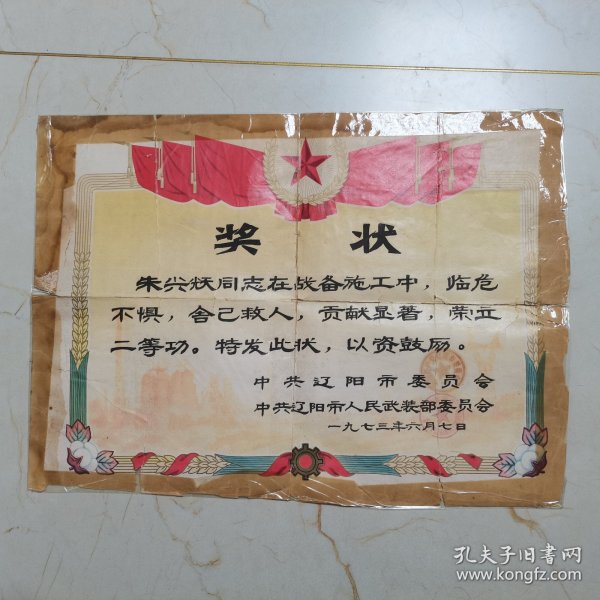 奖状
朱兴妖同志在战备施工中，临危
不惧，舍己救人，贡献显著，荣立
二等功。特发此状，以资鼓励。
中共辽阳市委员会
中共辽阳市人民武装部委员会
一九七三年六月七日
孔夫子旧书网
www.kongfz.com